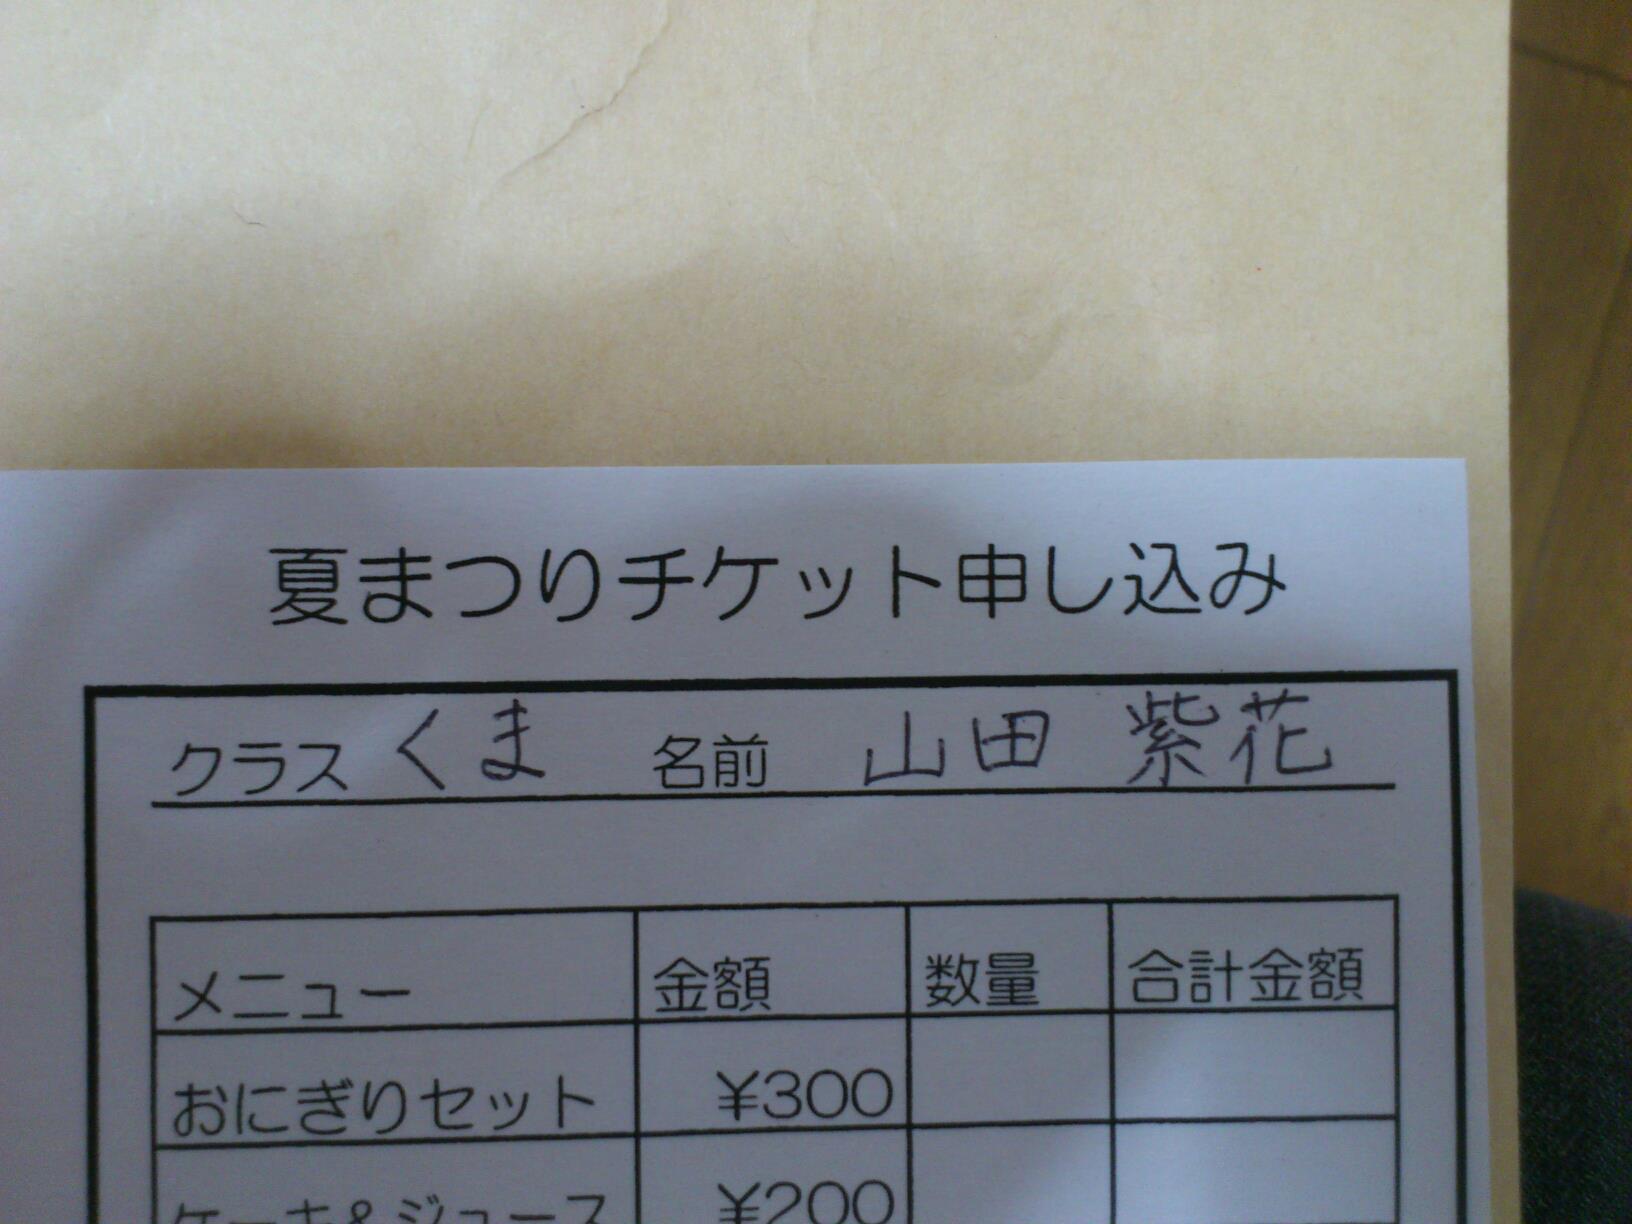 夏まつりチケット申し込み
クラス くま 名前 山田 紫花
メニュー 金額 数量 合計金額
おにぎりセット ¥300
ケーキ&ジュース ¥200